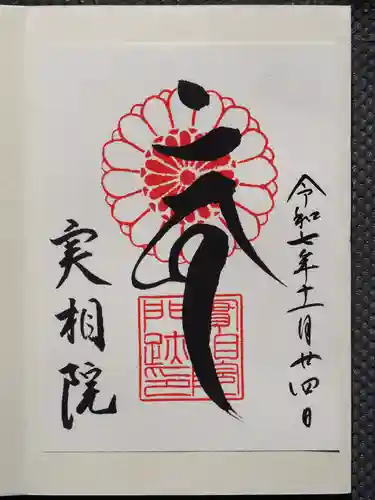 令和七年十一月廿四日
実相院